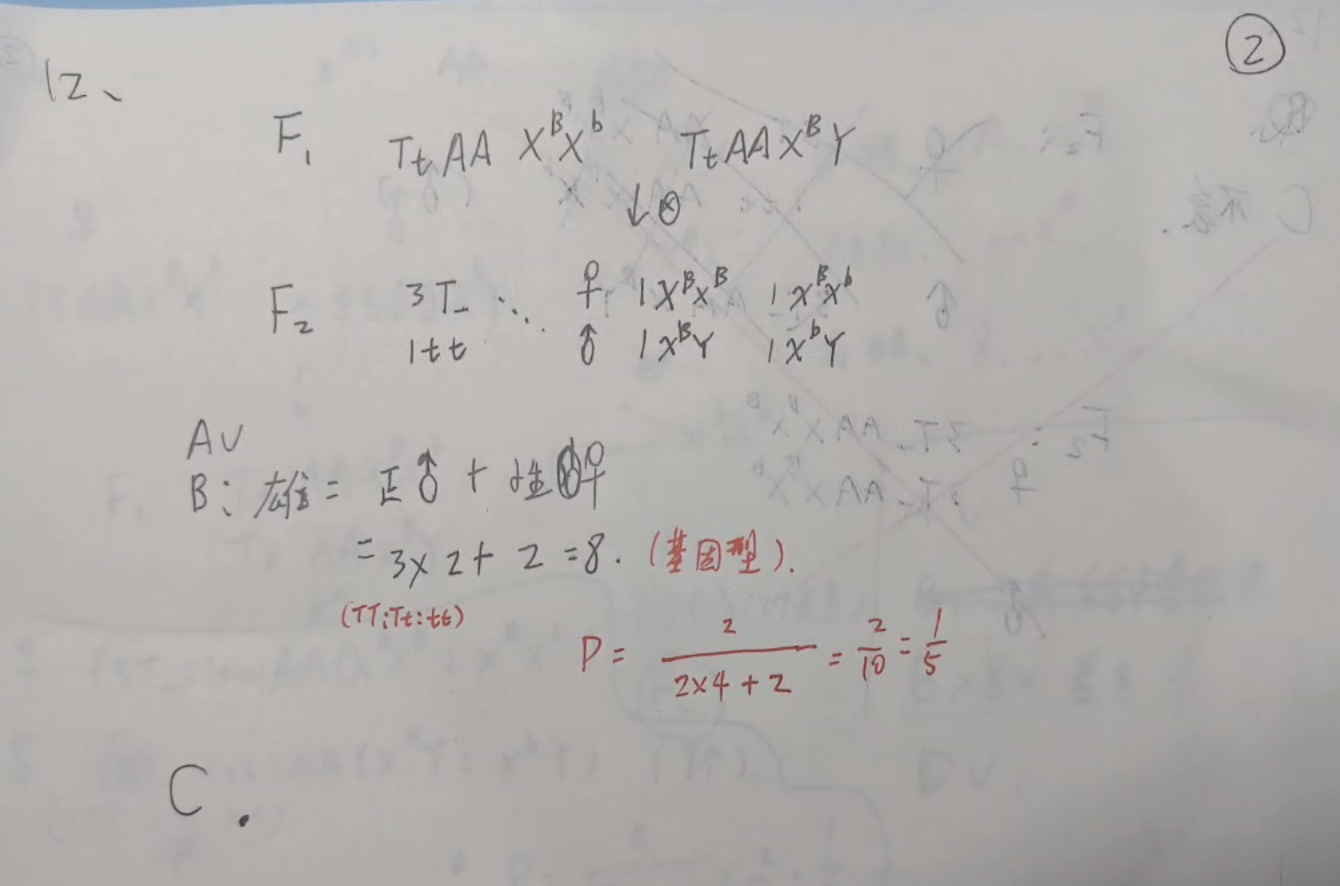 ②
12、
F₁ TtAA XᴮXᵇ TtAAXᴮY
↓⊗
F₂ 3T_ ⋱ ♀ 1XᴮXᴮ 1XᴮXᵇ
1tt ♂ 1XᴮY 1XᵇY
A√
B: 雄 = 正♂ + 性♀
= 3×2+2=8. (基因型).
(TT:Tt:tt)
P = 2/(2×4+2) = 2/10 = 1/5
C.